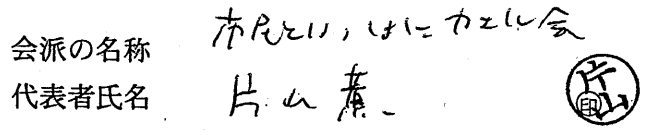 会派の名称 市民といっしょにカエル会
代表者氏名 片山薫 片山印